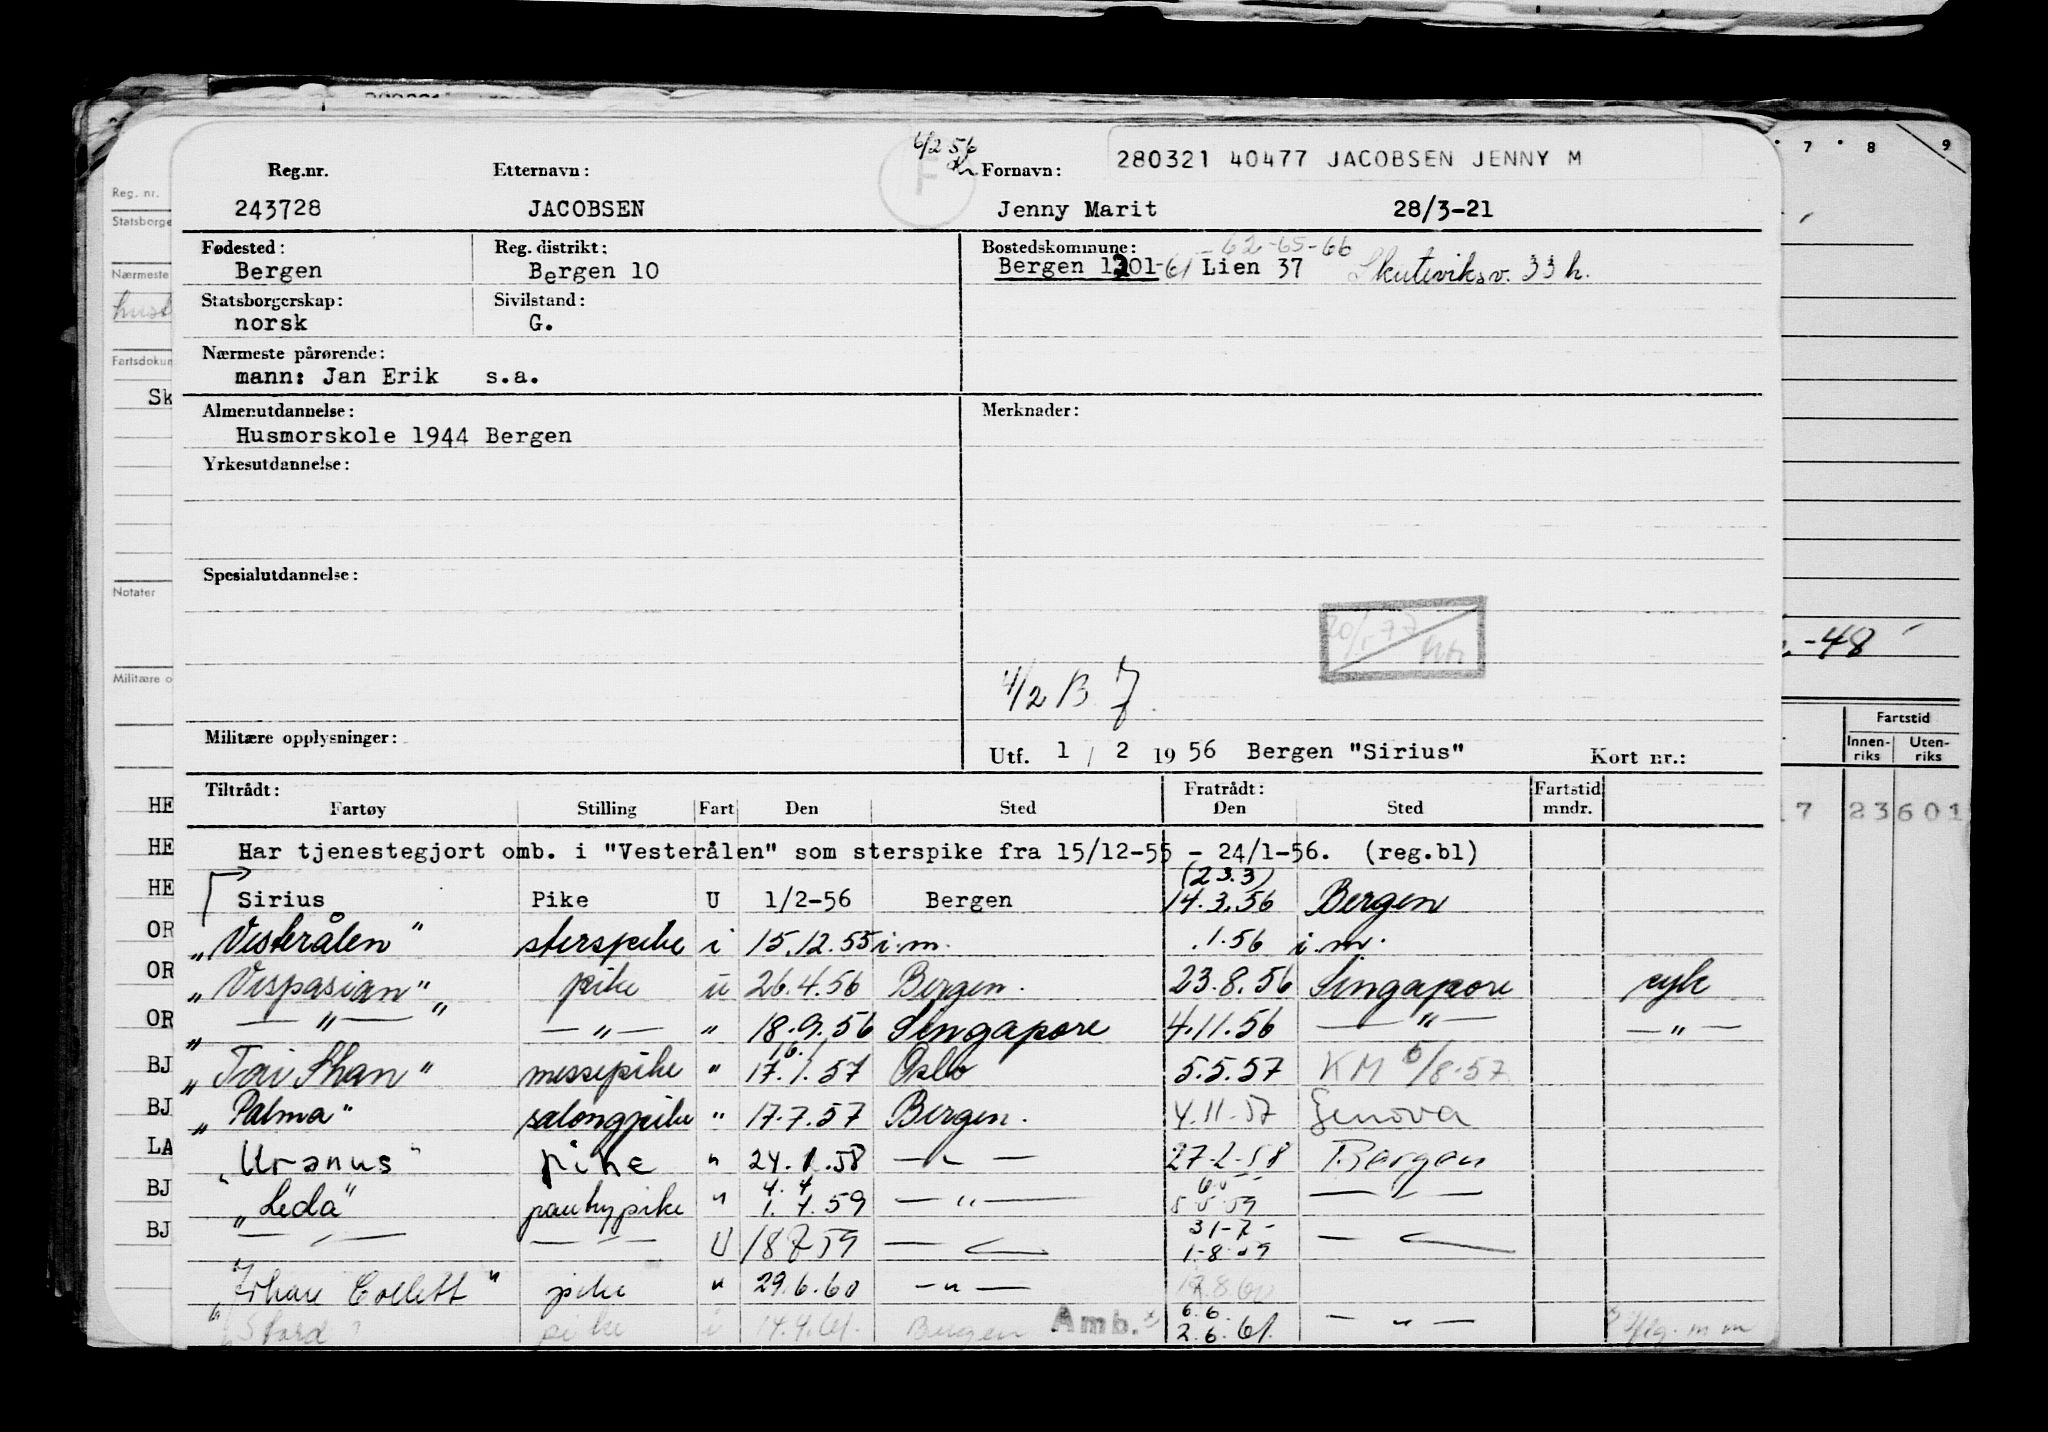 6/2 56
280321 40477 JACOBSEN JENNY M
Reg.nr. Etternavn: F Fornavn:
243728 JACOBSEN Jenny Marit 28/3-21
Fødested: Reg. distrikt: Bostedskommune: -62-65-66
Bergen Bergen 10 Bergen 1301-61 Lien 37 Skuteviksv. 33 h.
Statsborgerskap: Sivilstand:
norsk G.
Nærmeste pårørende:
mann: Jan Erik s.a.
Almenutdannelse: Merknader:
Husmorskole 1944 Bergen
Yrkesutdannelse:
Spesialutdannelse:
20/1-77
4/2 B.
Militære opplysninger:
Utf. 1 / 2 1956 Bergen "Sirius" Kort nr.:
Tiltrådt: Fratrådt: Fartstid
Fartøy Stilling Fart Den Sted Den Sted mndr.
Har tjenestegjort omb. i "Vesterålen" som sterspike fra 15/12-55 - 24/1-56. (reg.bl)
(23.3)
Sirius Pike U 1/2-56 Bergen 14.3.56 Bergen
"Vesterålen" sterspike i 15.12.55 i.m. .1.56 i.m.
"Vespasian" pike u 26.4.56 Bergen. 23.8.56 Singapore syk
" — " — " — " — " 18.9.56 Singapore 4.11.56 — " — — " —
16.1
"Tai Shan" messepike " 17.1.57 Oslo 5.5.57 KM 6/8-57
"Palma" salongpike " 17.7.57 Bergen. 4.11.57 Genova
"Uranus" pike " 24.1.58 — " — 27-2-58 Bergen
4.4 6.5
"Leda" pantrypike " 1.4.59 — " — 5 5 59 — " —
31-7-
— " — — " — U 18 7 59 — " — 1-8-59 — " —
"Johan Collett" pike " 29.6.60 — " — 17.8.60
6.6
"Stord" pike i 14.4.61. Bergen Amb. 2.6.61. — " —
Reg. nr.
Statsborge
Nærmeste
Fartsdokum
Sk
Notater
Militære o
HE
HE
HE
OR
OR
OR
BJ
BJ
LA
BJ
BJ
7 8 9
-48
Fartstid
Innen-riks Uten-riks
7 23 601